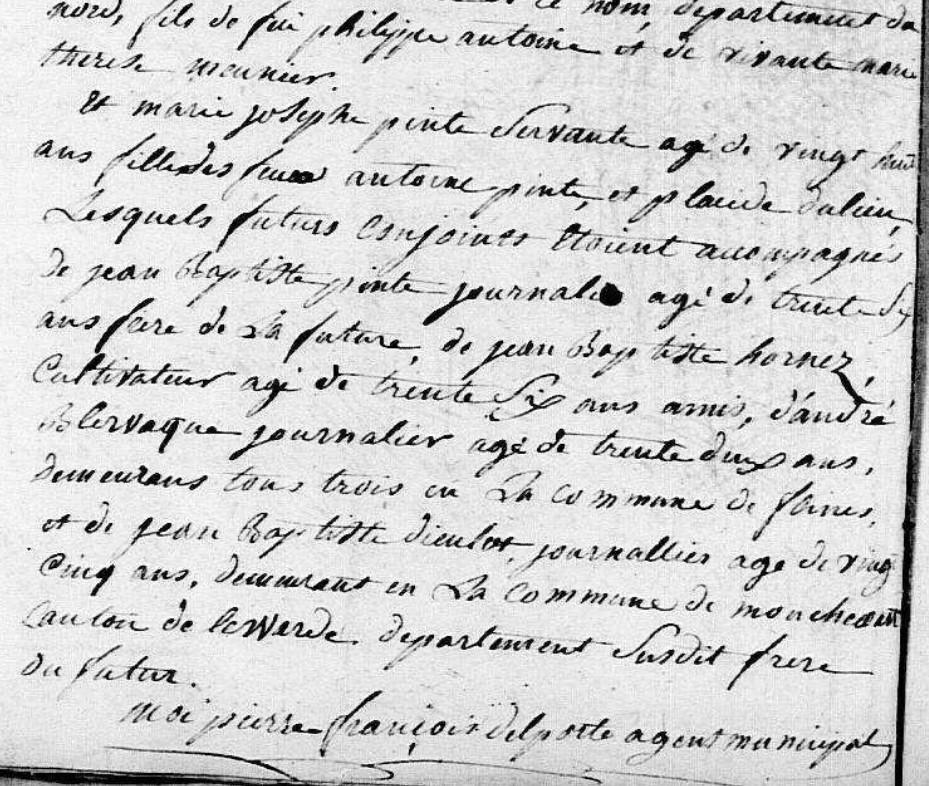 ce nom, departement du
nord, fils de feu philippe antoine et de vivante marie
therese meunier.
Et marie josephe pinte Servante agé de vingt huit
ans filledes feu antoine pinte, et placide dalieu,
Lesquels futurs Conjoints Etoient accompagnés
de jean Baptiste pinte journalier agé de trente Six
ans frere de La future, de jean Baptiste hornez,
Cultivateur agé de trente Six ans amis, d'andré
Blervaque journalier agé de trente deux ans,
demeurans tous trois en La Commune de flines,
et de jean Baptiste dieulot, journallier age de vingt
Cinq ans, demeurant en La Commune de moncheaux
Canton de lewerde departement Susdit frere
du futur.
moi pierre françois delporte agent municipal